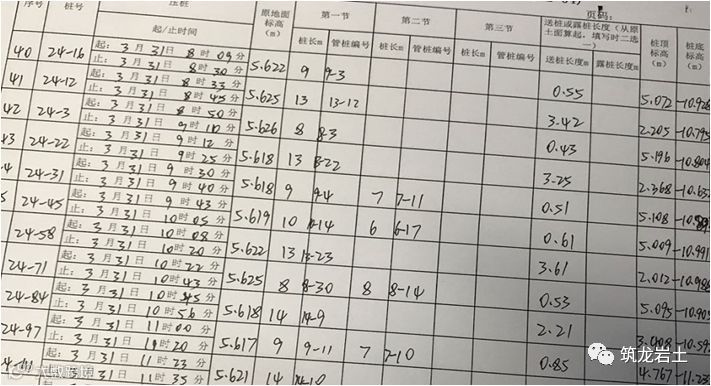 页码：
序号 桩号 压桩 原地面标高(m) 第一节 第二节 第三节 送桩或露桩长度（从原土面算起，填写时二选一） 桩顶标高(m) 桩底标高(m)
起/止时间 桩长m 管桩编号 桩长m 管桩编号 桩长m 管桩编号 送桩长度m 露桩长度m
40 24-16 起：3月31日8时09分 5.622 9 9-3 0.55 5.072 -10.928
止：3月31日8时30分
41 24-12 起：3月31日8时33分 5.625 13 13-12 3.42 2.205 -10.795
止：3月31日8时45分
42 24-3 起：3月31日8时50分 5.626 8 8-3 0.43 5.196 -10.804
止：3月31日9时10分
43 24-22 起：3月31日9时12分 5.618 13 13-22 3.25 2.368 -10.632
止：3月31日9时25分
24-31 起：3月31日9时30分 5.618 9 9-4 7 7-11 0.51 5.108
止：3月31日9时40分
24-45 起：3月31日9时43分 5.619 10 10-14 6 6-17 0.61 5.009 -10.991
止：3月31日10时05分
24-58 起：3月31日10时08分 5.622 13 13-23 3.61 2.012 -10.988
止：3月31日10时20分
24-71 起：3月31日10时22分 5.625 8 8-30 8 8-14 0.53 5.095 -10.905
止：3月31日10时43分
24-84 起：3月31日10时45分 5.618 14 14-9 2.21
止：3月31日10时56分
24-97 起：3月31日11时00分 5.617 9 9-11 7 7-10 0.85 4.767
止：3月31日11时20分
起：3月31日11时23分 5.621 14 14-10
止：3月31日11时35分
筑龙岩土